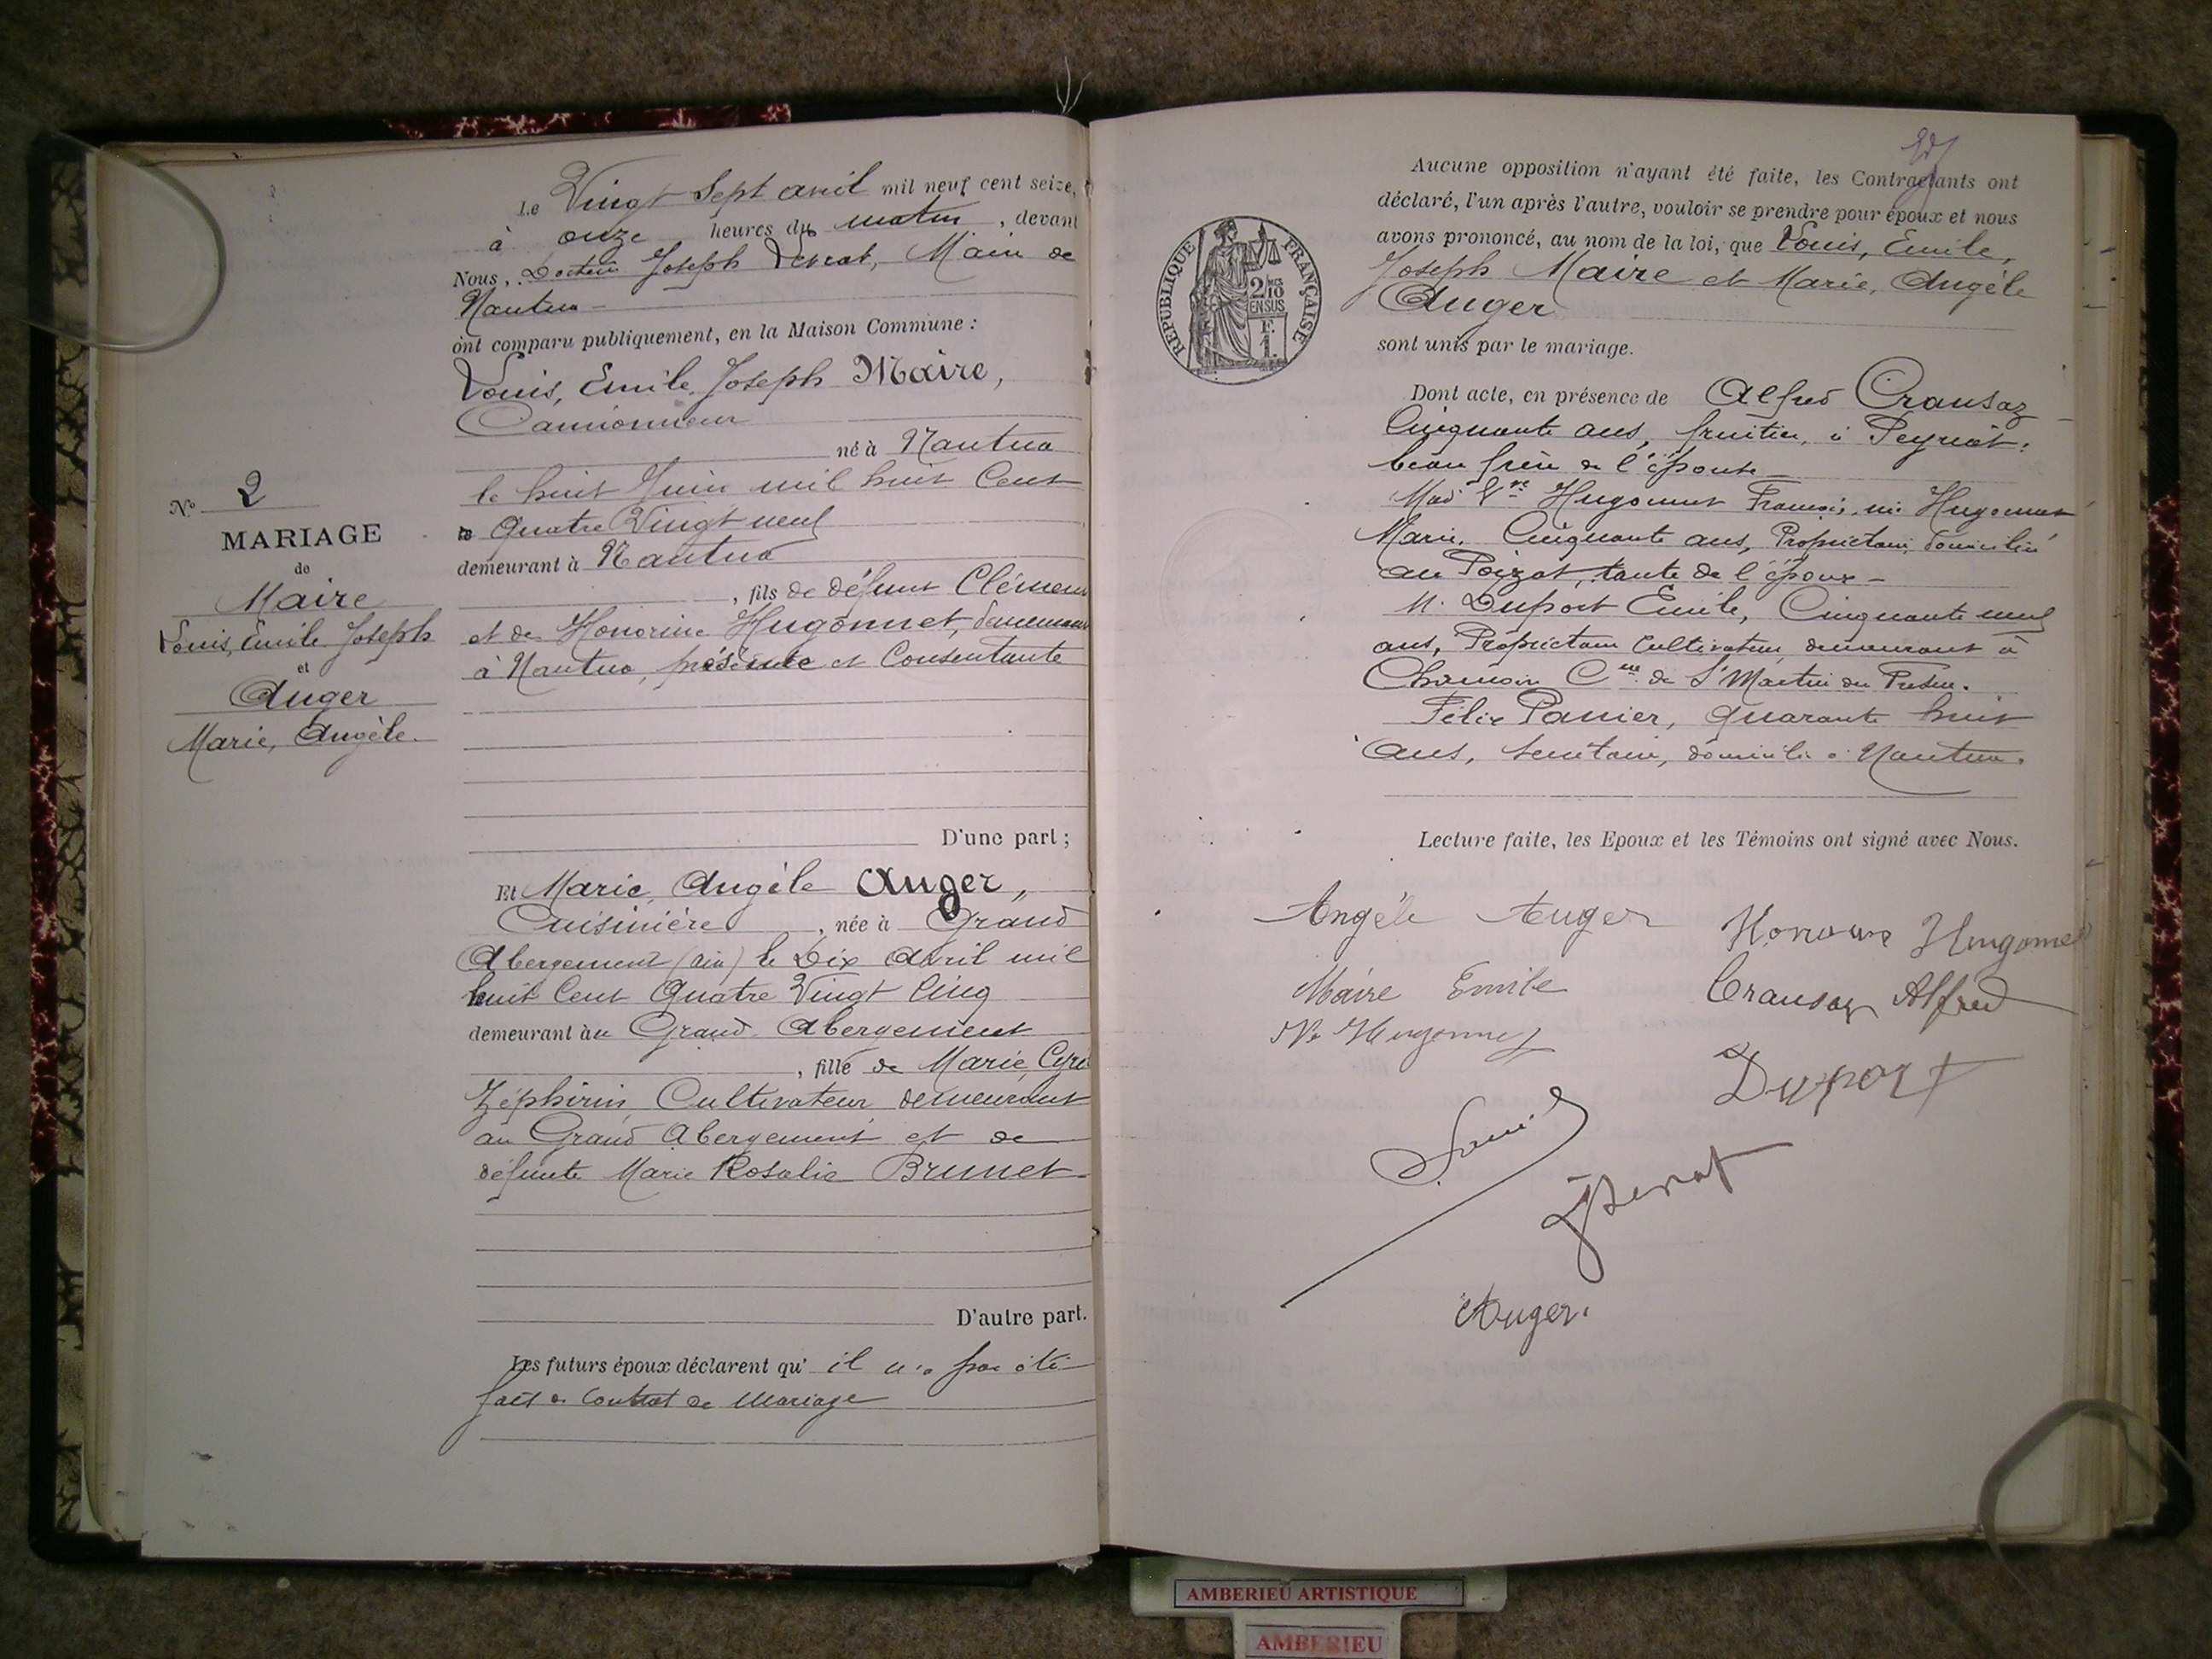 Le Vingt Sept avril mil neuf cent seize,
à onze heures du matin, devant
Nous, Docteur Joseph Maire de
Nantua
ont comparu publiquement, en la Maison Commune :
Louis, Emile, Joseph Maire,
Camionneur
né à Nantua
le huit Juin mil huit Cent
Quatre Vingt neuf
demeurant à Nantua
, fils de défunt Clément
et de Honorine Hugonnet, demeurant
à Nantua, présente et Consentante
D'une part ;
Et Marie, Angèle Auger,
Cuisinière, née à Grand
Abergement (Ain) le Dix Avril mil
huit Cent Quatre Vingt Cinq
demeurant au Grand Abergement
, fille de Marie, Cyre
Zéphirin, Cultivateur demeurant
au Grand Abergement et de
défunte Marie Rosalie Brunet
D'autre part.
Les futurs époux déclarent qu' il n'a pas été
fait de Contrat de Mariage
N° 2
MARIAGE
de
Maire
Louis, Emile Joseph
et
Auger
Marie, Angèle.
Aucune opposition n'ayant été faite, les Contractants ont
déclaré, l'un après l'autre, vouloir se prendre pour époux et nous
avons prononcé, au nom de la loi, que Louis, Emile,
Joseph Maire et Marie, Angèle
Auger
sont unis par le mariage.
REPUBLIQUE FRANÇAISE
2/10 MES
EN SUS
F.
1.
Dont acte, en présence de Alfred Crausaz
Cinquante ans, fruitier, à Peyriat,
beau frère de l'épouse
Mad Vve Hugonnet François, née Hugonnet
Marie, Cinquante ans, Propriétaire, domiciliée
au Poizat, tante de l'époux -
M. Duport Emile, Cinquante neuf
ans, Propriétaire Cultivateur, demeurant à
Cne de St Martin du Fresne.
Félix Panier, Quarante huit
ans, secrétaire, domicilié à Nantua.
Lecture faite, les Epoux et les Témoins ont signé avec Nous.
Angèle Auger
Honorine Hugonnet
Maire Emile
Crausaz Alfred
Ve Hugonnet
Duport
Auger.
AMBERIEU ARTISTIQUE
AMBERIEU